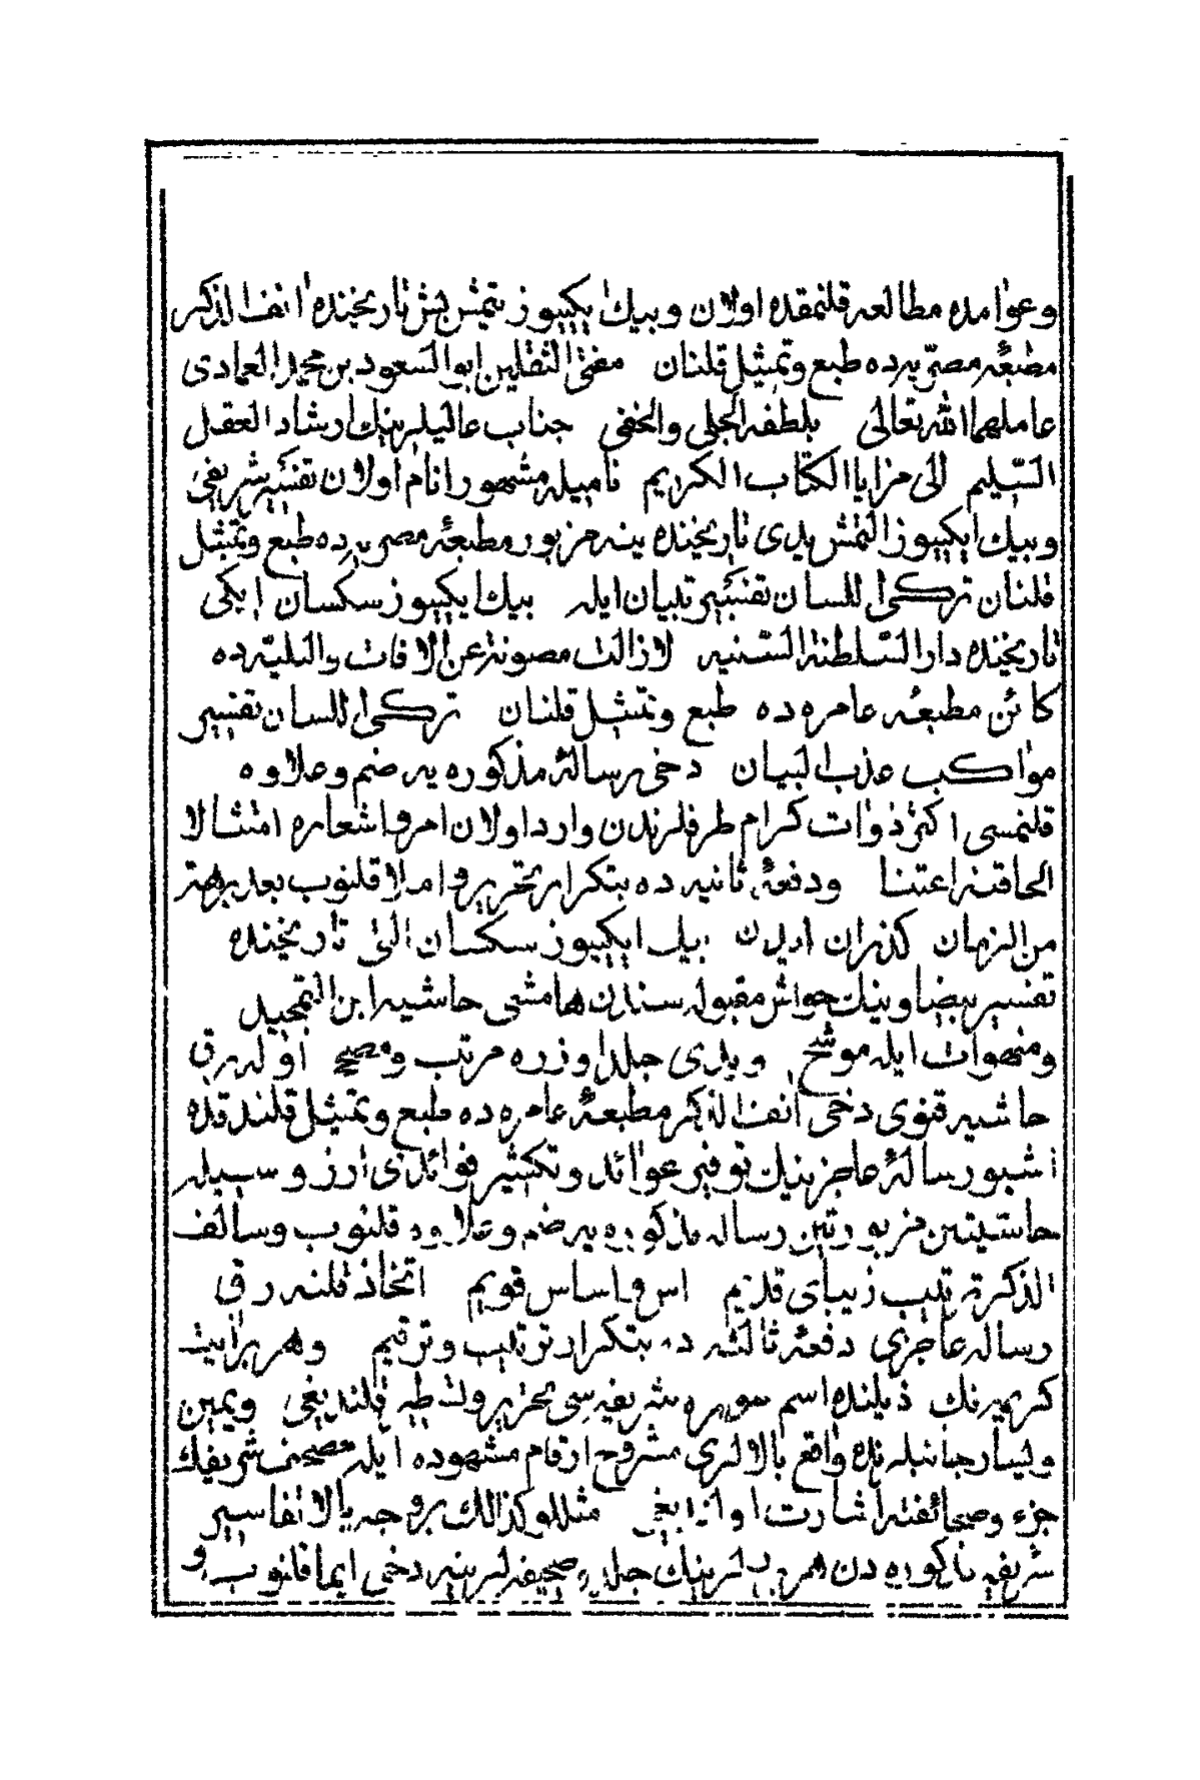 وعوامده مطالعه قلنمقده اولان وبیك ایكییوز یتمش بش تاریخنده انف الذكر
مطبعهٔ مصریه ده طبع وتمثیل قلنان مفتی الثقلین ابو السعود بن محمد العمادی
عاملهما الله تعالی بلطفه الجلی والخفی جناب عالیلرینك ارشاد العقل
السلیم الی مزایا الكتاب الكریم نامیله مشهور انام اولان تفسیر شریفی
وبیك ایكییوز التمش یدی تاریخنده ینه مزبور مطبعهٔ مصریه ده طبع وتمثیل
قلنان تركی اللسان تفسیر تبیان ایله بیك ایكییوز سكسان ایكی
تاریخنده دار السلطنة السنیه لا زالت مصونة عن الافات والبلیه ده
كائن مطبعهٔ عامره ده طبع وتمثیل قلنان تركی اللسان تفسیر
مواكب عذب البیان دخی رسالهٔ مذكوره یه ضم وعلاوه
قلنمسی اكثر ذوات كرام طرفلرندن وارد اولان امر واشعاره امتثالا
الحاقنه اعتنا ودفعهٔ ثانیه ده بتكرار تحریر واملا قلنوب بعد برهة
من الزمان كذران ایدن بیك ایكییوز سكسان التی تاریخنده
تفسیر بیضاوینك حواش مقبوله سندن هامشی حاشیه ابن التمجید
ومنهوات ایله موشح ویدی جلد اوزره مرتب ومصحح اوله رق
حاشیه قنوی دخی انف الذكر مطبعهٔ عامره ده طبع وتمثیل قلندقده
اشبو رسالهٔ عاجزینك توفیر عوائد وتكثیر فوائدی ارزوسیله
حاشیتین مزبورتین رساله مذكوره یه ضم وعلاوه قلنوب وسالف
الذكر ترتیب زیبای قدیم اس واساس قویم اتخاذ قلنه رق
رساله عاجزی دفعهٔ ثالثه ده بتكرار ترتیب وترقیم وهر بر ایت
كریمه نك ذیلنده اسم سوره شریفه سی تحریر وتسطیر قلندیغی ویمین
ویسار جانبلرنده واقع بالالری مشروح ارقام مشهوده ایله مصحف شریفك
جزء وصحائفنه اشارت اولندیغی مثللو كذالك بر وجه بالا تفاسیر
شریفه مذكوره دن هر برلرینك جلد وصحیفه لرینه دخی ایما قلنوب و